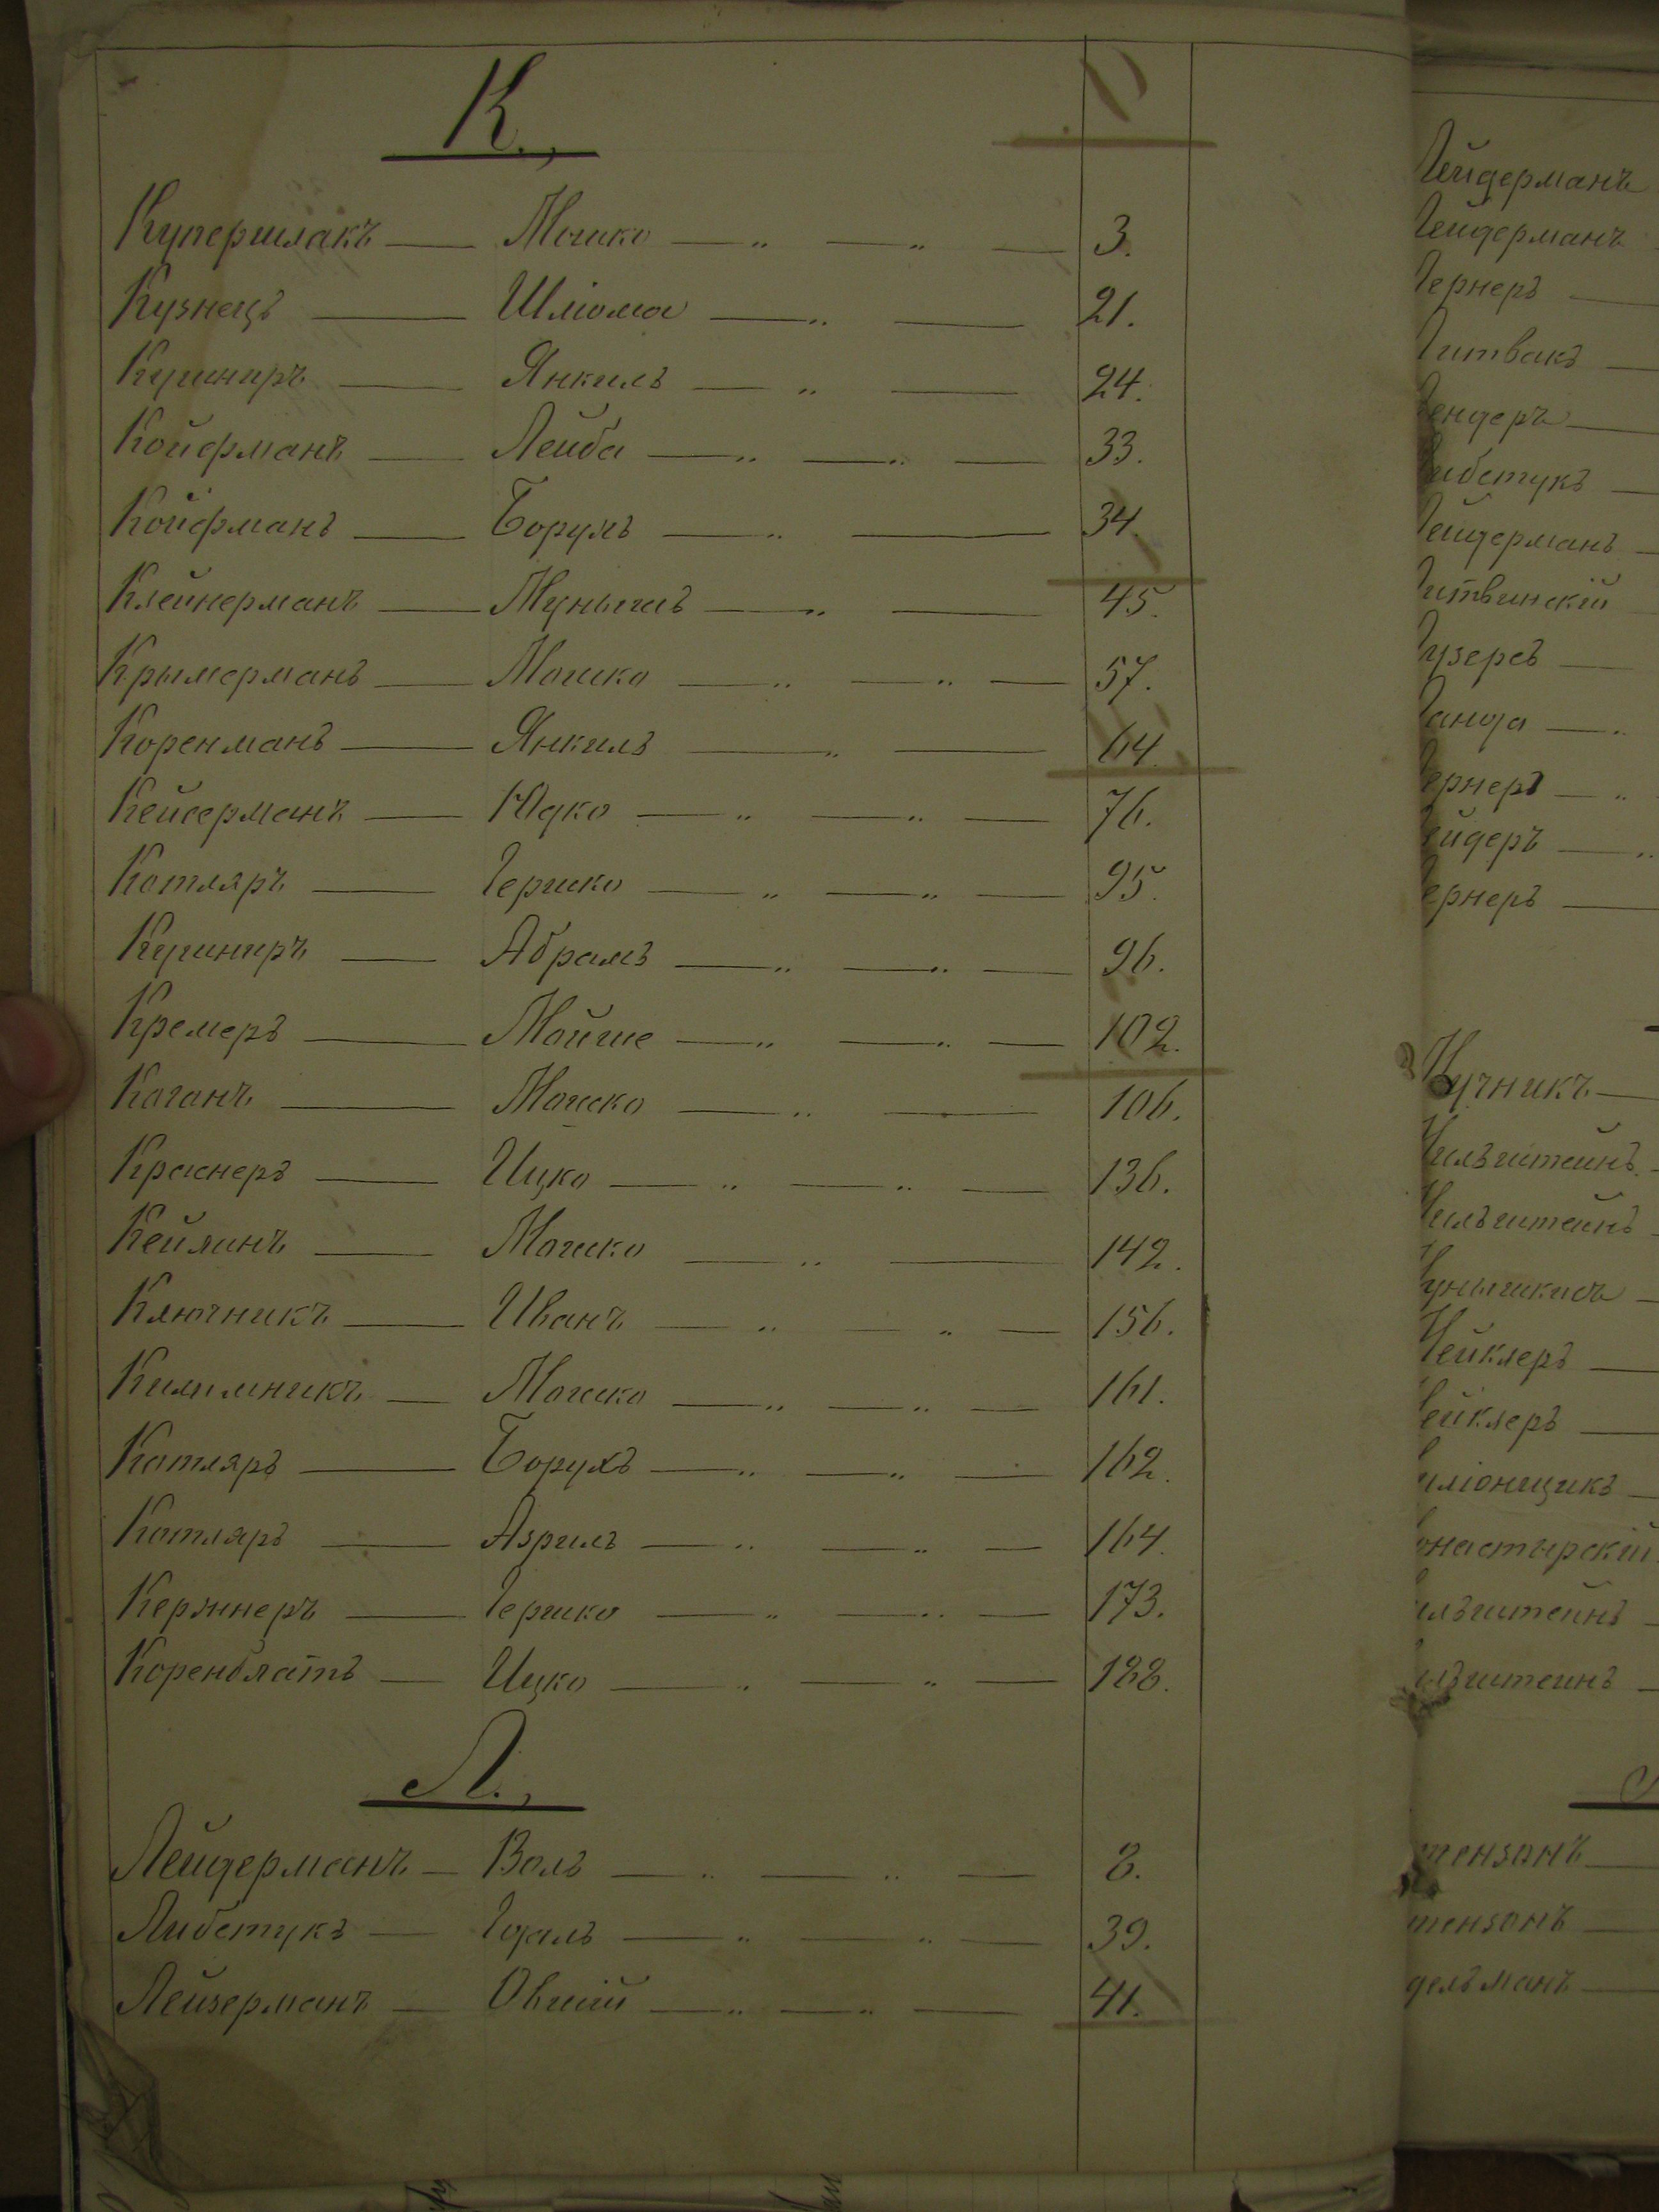 К.,
Купершлакъ — Мошко — „ — „ — 3.
Кузнецъ — Шліома — „ — 21.
Кушниръ — Янкиль — „ — 24.
Койфманъ — Лейба — „ — „ — 33.
Койфманъ — Борухъ — „ — 34.
Клейнерманъ — Муньишъ — „ — 45.
Крымерманъ — Мошко — „ — „ — 57.
Коренманъ — Янкиль — „ — 64.
Кейсерманъ — Юдко — „ — „ — 76.
Котляръ — Гершко — „ — „ — 95.
Кушниръ — Абрамъ — „ — „ — 96.
Кремеръ — Мойше — „ — „ — 102.
Каганъ — Мошко — „ — 106.
Краснеръ — Ицко — „ — „ — 136.
Кейлинъ — Мошко — „ — 142.
Ключникъ — Иванъ — „ — „ — 156.
Килимникъ — Мошко — „ — „ — 161.
Котляръ — Борухъ — „ — „ — 162.
Котляръ — Азриль — „ — „ — 164.
Кержнеръ — Гершко — „ — „ — 173.
Коренблатъ — Ицко — „ — „ — 188.
Л.,
Лейдерманъ — Волъ — „ — „ — 8.
Либстукъ — Годаль — „ — „ — 39.
Лейзерманъ — Овший — „ — „ — 41.
Лейдерманъ
Лейдерманъ
Лернеръ —
Литвакъ —
Лендеръ —
Либстукъ —
Лейдерманъ —
Литвинскій
Лузеръ —
Ланда — „
Лернеръ — „
Лейдеръ — „
Лернеръ —
Мучникъ —
Мильштейнъ
Мильштейнъ
Меклеръ —
Меклеръ —
иліонщикъ —
онастырскій
ильштейнъ —
льштейнъ —
тензонъ —
тензонъ —
дельманъ —